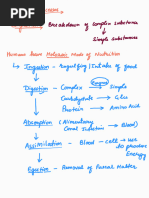 Breakdown of Complex Substance
Simple Substances
Humans have Holozoic Mode of Nutrition
Ingestion - Engulfing / Intake of food
Enzyme
Digestion - Complex → Simple
Carbohydrate → Glu
Protein → Amino Acid
Absorption (Alimentary Canal Substance) → Blood
Assimilation - Blood → Cell → use to produce Energy
Egestion - Removal of Faecal Matter